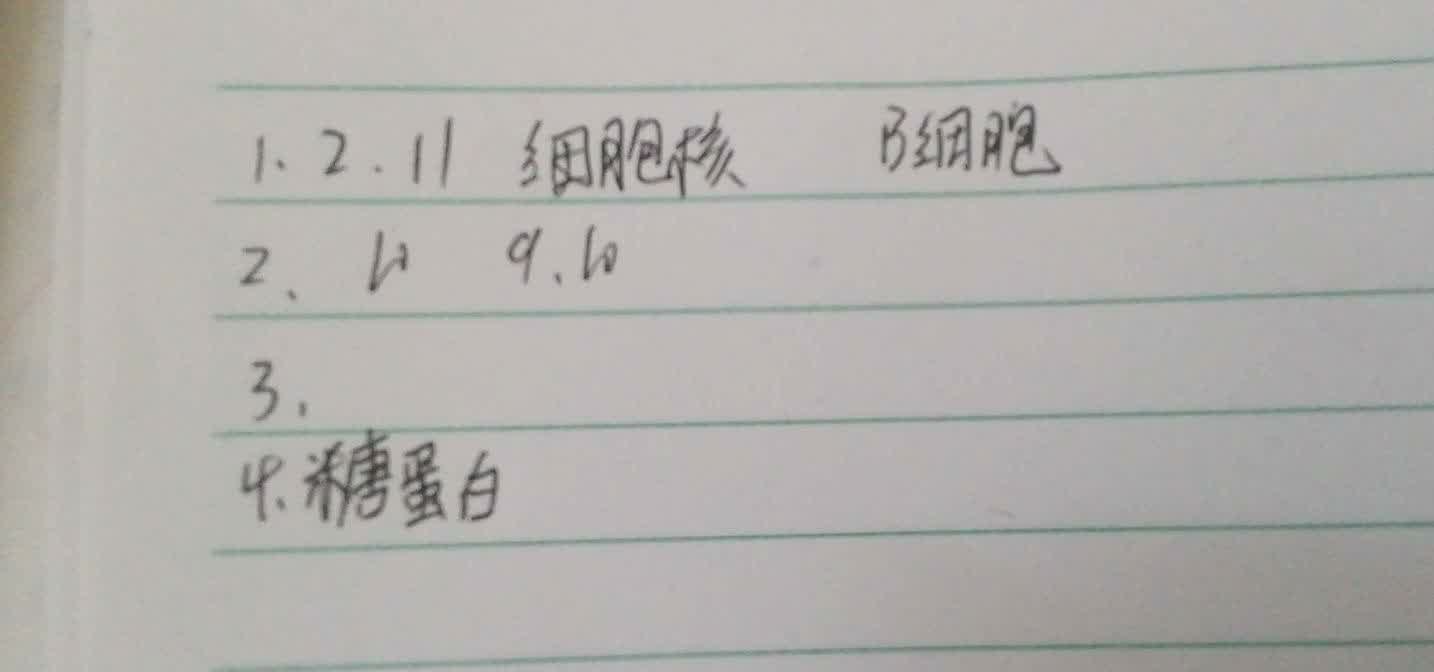 1. 2. 11 细胞核 B细胞
2、 10 9、10
3.
4. 糖蛋白